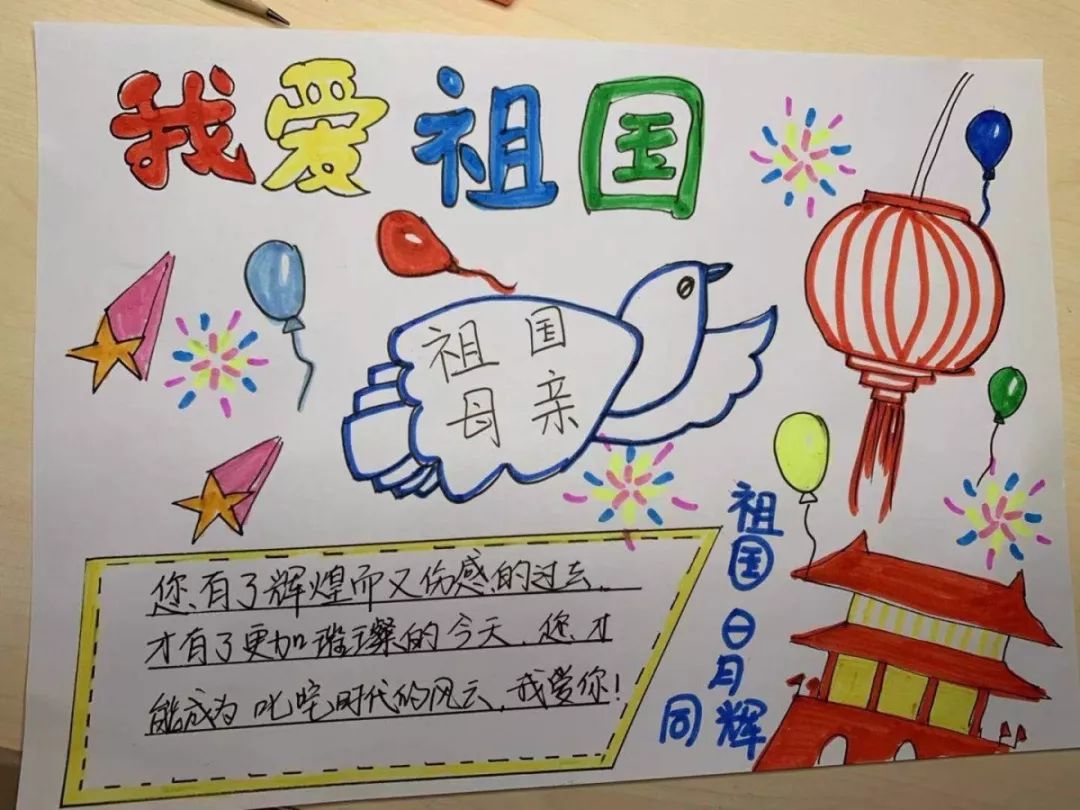 我爱祖国
祖国
母亲
祖国日月同辉
您有了辉煌而又伤感的过去,
才有了更加璀璨的今天,您才
能成为叱咤时代的风云,我爱你!